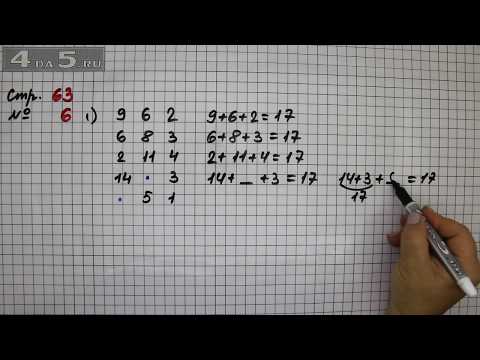 4 DA 5.RU
Стр. 63
№ 6 1) 9 6 2 9+6+2=17
6 8 3 6+8+3=17
2 11 4 2+11+4=17
14 · 3 14+ _ +3=17 14+3+ _ =17
17
· 5 1